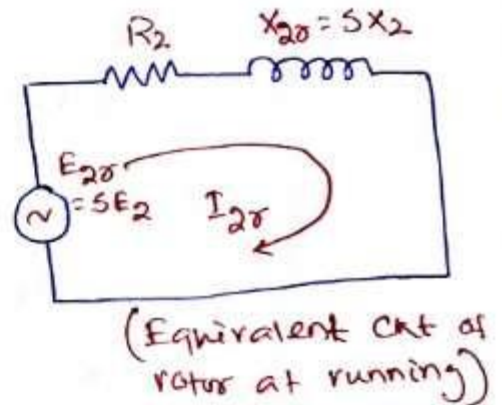 R2 X2r = SX2
E2r
= SE2 I2r
~
(Equivalent Ckt of
rotor at running)